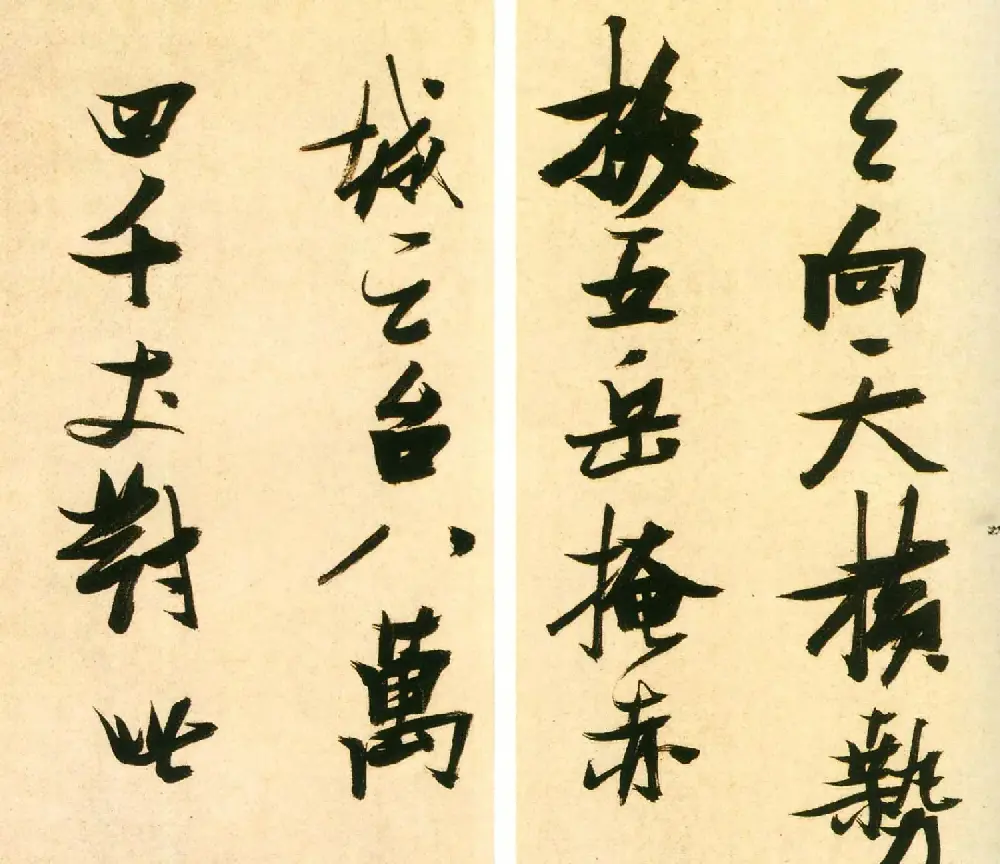 天向天橫勢
拔五岳掩赤
城天台八萬
四千丈對此